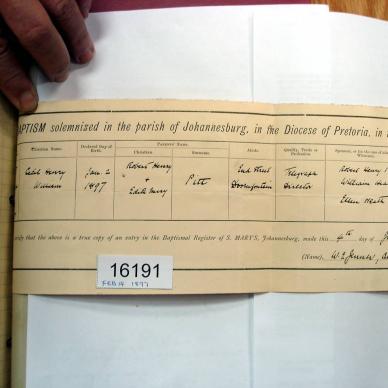 BAPTISM solemnized in the parish of Johannesburg, in the Diocese of Pretoria, in
Christian Name. Declared Day of Birth. Parents' Name. Christian. Surname. Abode. Quality, Trade or Profession. Sponsors,
Cecil Henry William
Jan. 2 1897
Robert Henry + Edith Mary
Pitt
End Street Doornfontein
Telegraph Director
Robert Henry
William
Ellen
certify that the above is a true copy of an entry in the Baptismal Register of S. MARY'S, Johannesburg, made this 4th day of
(Name),
16191
FEB 14 1897